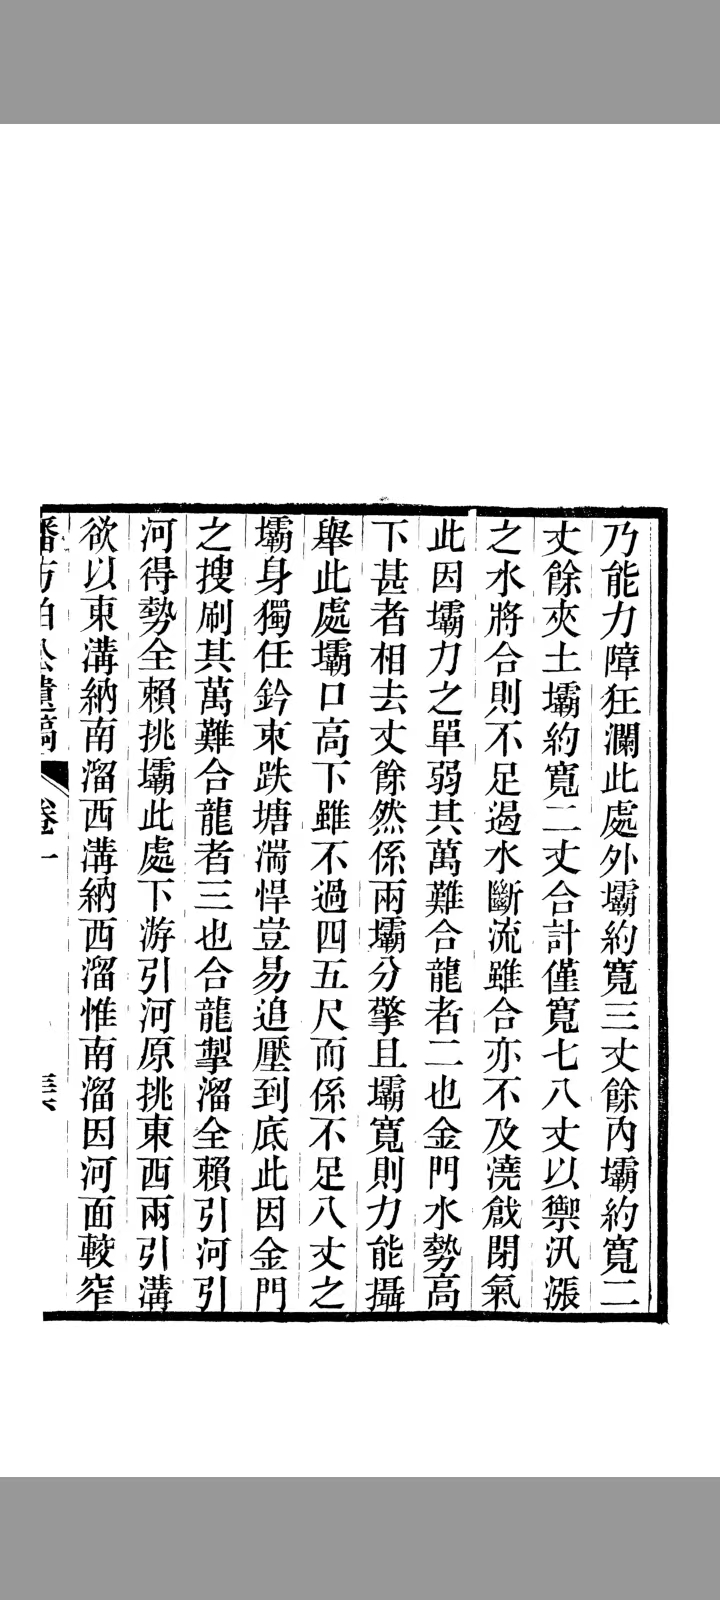 乃能力障狂瀾此處外壩約寬三丈餘內壩約寬二
丈餘夾土壩約寬二丈合計僅寬七八丈以禦汛漲
之水將合則不足遏水斷流雖合亦不及澆戧閉氣
此因壩力之單弱其萬難合龍者二也金門水勢高
下甚者相去丈餘然係兩壩分擎且壩寬則力能攝
舉此處壩口高下雖不過四五尺而係不足八丈之
壩身獨任鈐束跌塘湍悍豈易追壓到底此因金門
之搜刷其萬難合龍者三也合龍掣溜全賴引河引
河得勢全賴挑壩此處下游引河原挑東西兩引溝
欲以東溝納南溜西溝納西溜惟南溜因河面較窄
遺稿 卷一